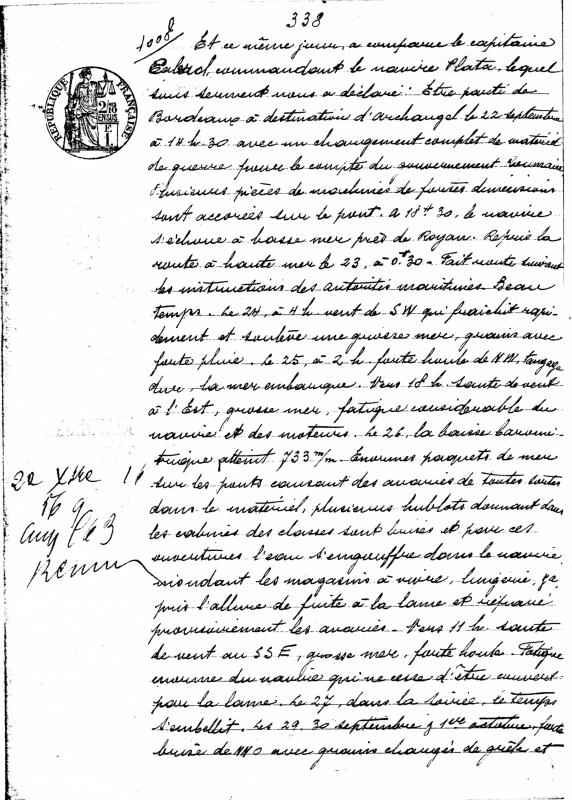 338
1008
Et ce même jour, a comparu le capitaine
commandant le navire Plata, lequel
sous serment nous a déclaré: Etre parti de
Bordeaux à destination d'Archangel le 22 septembre
à 14 h. 30 avec un chargement complet de matériel
de guerre pour le compte du gouvernement roumain
Plusieurs pièces de machines de fortes dimensions
sont accorées sur le pont. A 18 h 30, le navire
s'échoue à basse mer près de Royan. Repris la
route à haute mer le 23, à 0 h. 30 - Fait route suivant
les instructions des autorités maritimes. Beau
temps. Le 24, à 4 h. vent de SW qui fraîchit rapi-
dement et soulève une grosse mer, grains avec
forte pluie. Le 25, à 2 h. forte houle de NW, tangage
dur, la mer embarque. Vers 18 h. saute de vent
à l'Est, grosse mer, fatigue considérable du
navire et des moteurs. Le 26, la baisse baromé-
trique atteint 733 m/m. Enormes paquets de mer
sur les ponts causant des avaries de toutes sortes
dans le matériel, plusieurs hublots donnant dans
les cabines des classes sont brisés et par ces
ouvertures l'eau s'engouffre dans le navire
inondant les magasins à vivre, lingerie,
pris l'allure de fuite à la lame et réparé
provisoirement les avaries - Vers 11 h. saute
de vent au SSE, grosse mer, forte houle - Fatigue
énorme du navire qui ne cesse d'être couvert
par la lame. Le 27, dans la soirée, le temps
s'embellit. Les 29, 30 septembre & 1er octobre, forte
brise de NNO avec grains chargés de grêle et
REPUBLIQUE FRANÇAISE